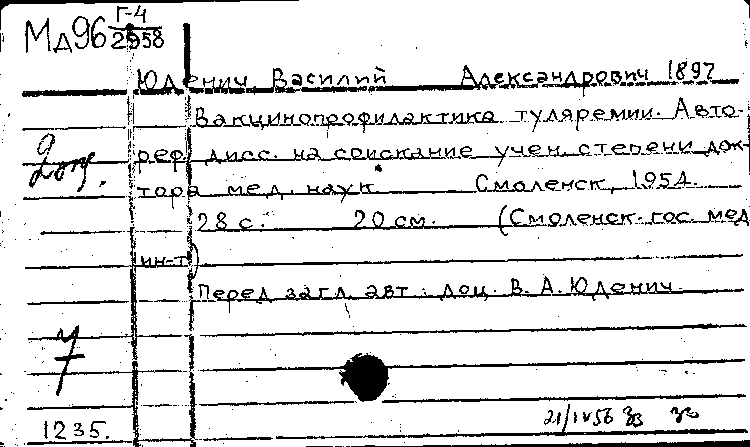 Мд96 Г-4
2958
Юденич, Василий Александрович 1897
Вакцинопрофилактика туляремии. Авто-
реф. дисс. на соискание учен. степени док-
тора мед. наук. Смоленск, 1954.
28 с. 20 см. (Смоленск. гос. мед.
ин-т)
Перед загл. авт.: доц. В. А. Юденич.
7
1235.
21/IV 56